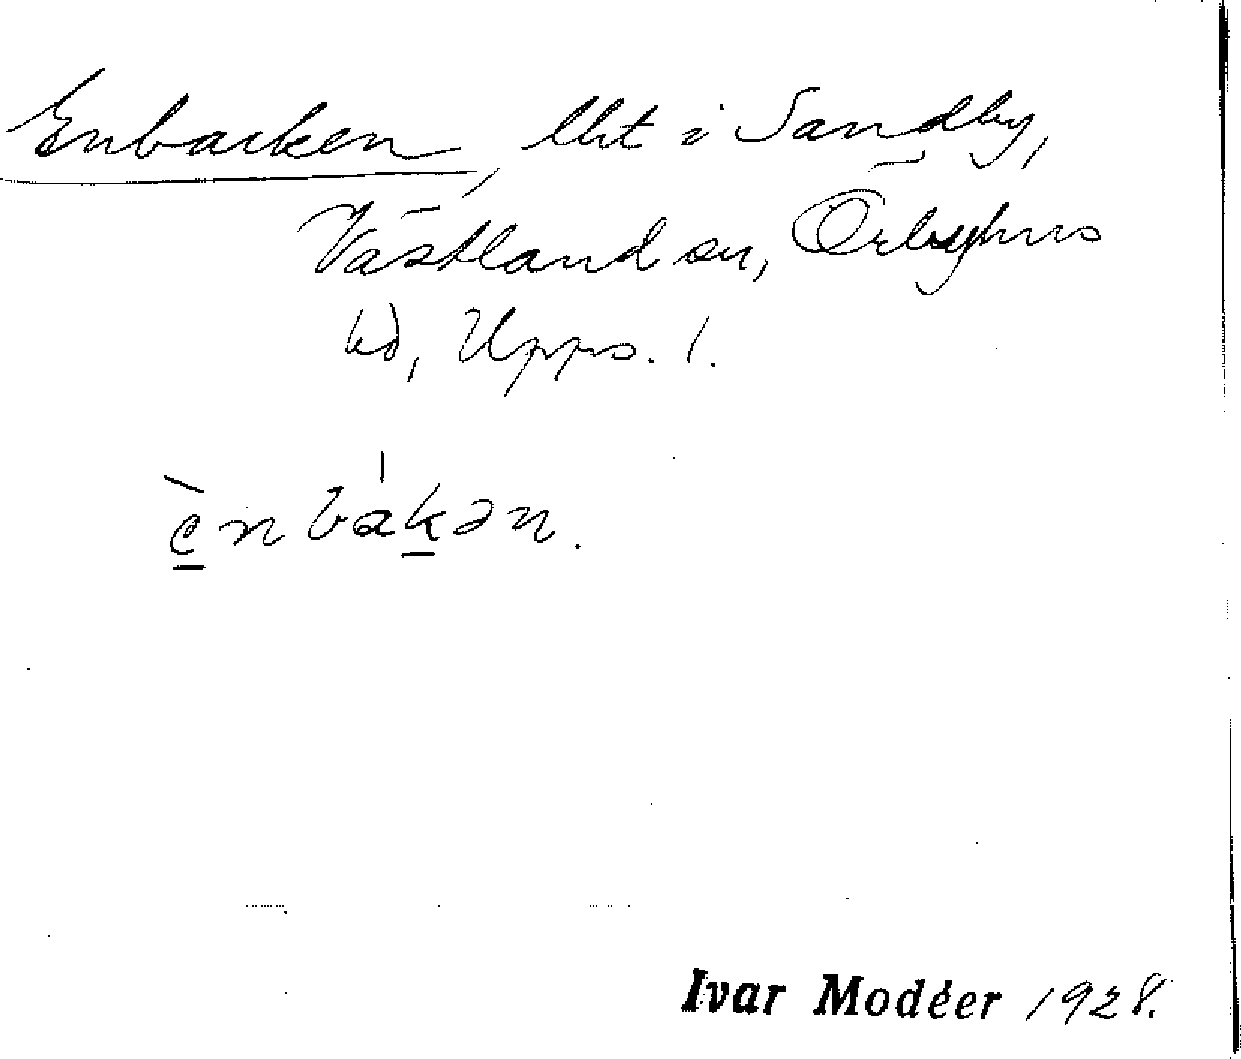 Enbacken, lht i Sandby,
Västland sn, Örbyhus
hd, Upps. l.
ènbàkən.
Ivar Modéer 1928.